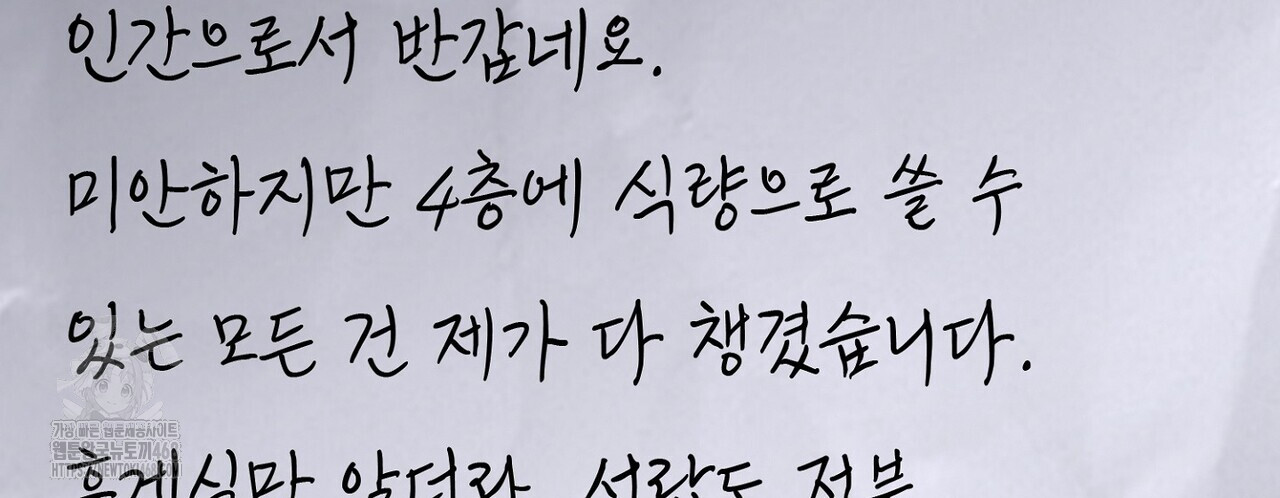 인간으로서 반갑네요.
미안하지만 4층에 식량으로 쓸 수
있는 모든 건 제가 다 챙겼습니다.
가장 빠른 웹툰제공사이트
웹툰왕국뉴토끼468
HTTPS://NEWTOKI468.COM